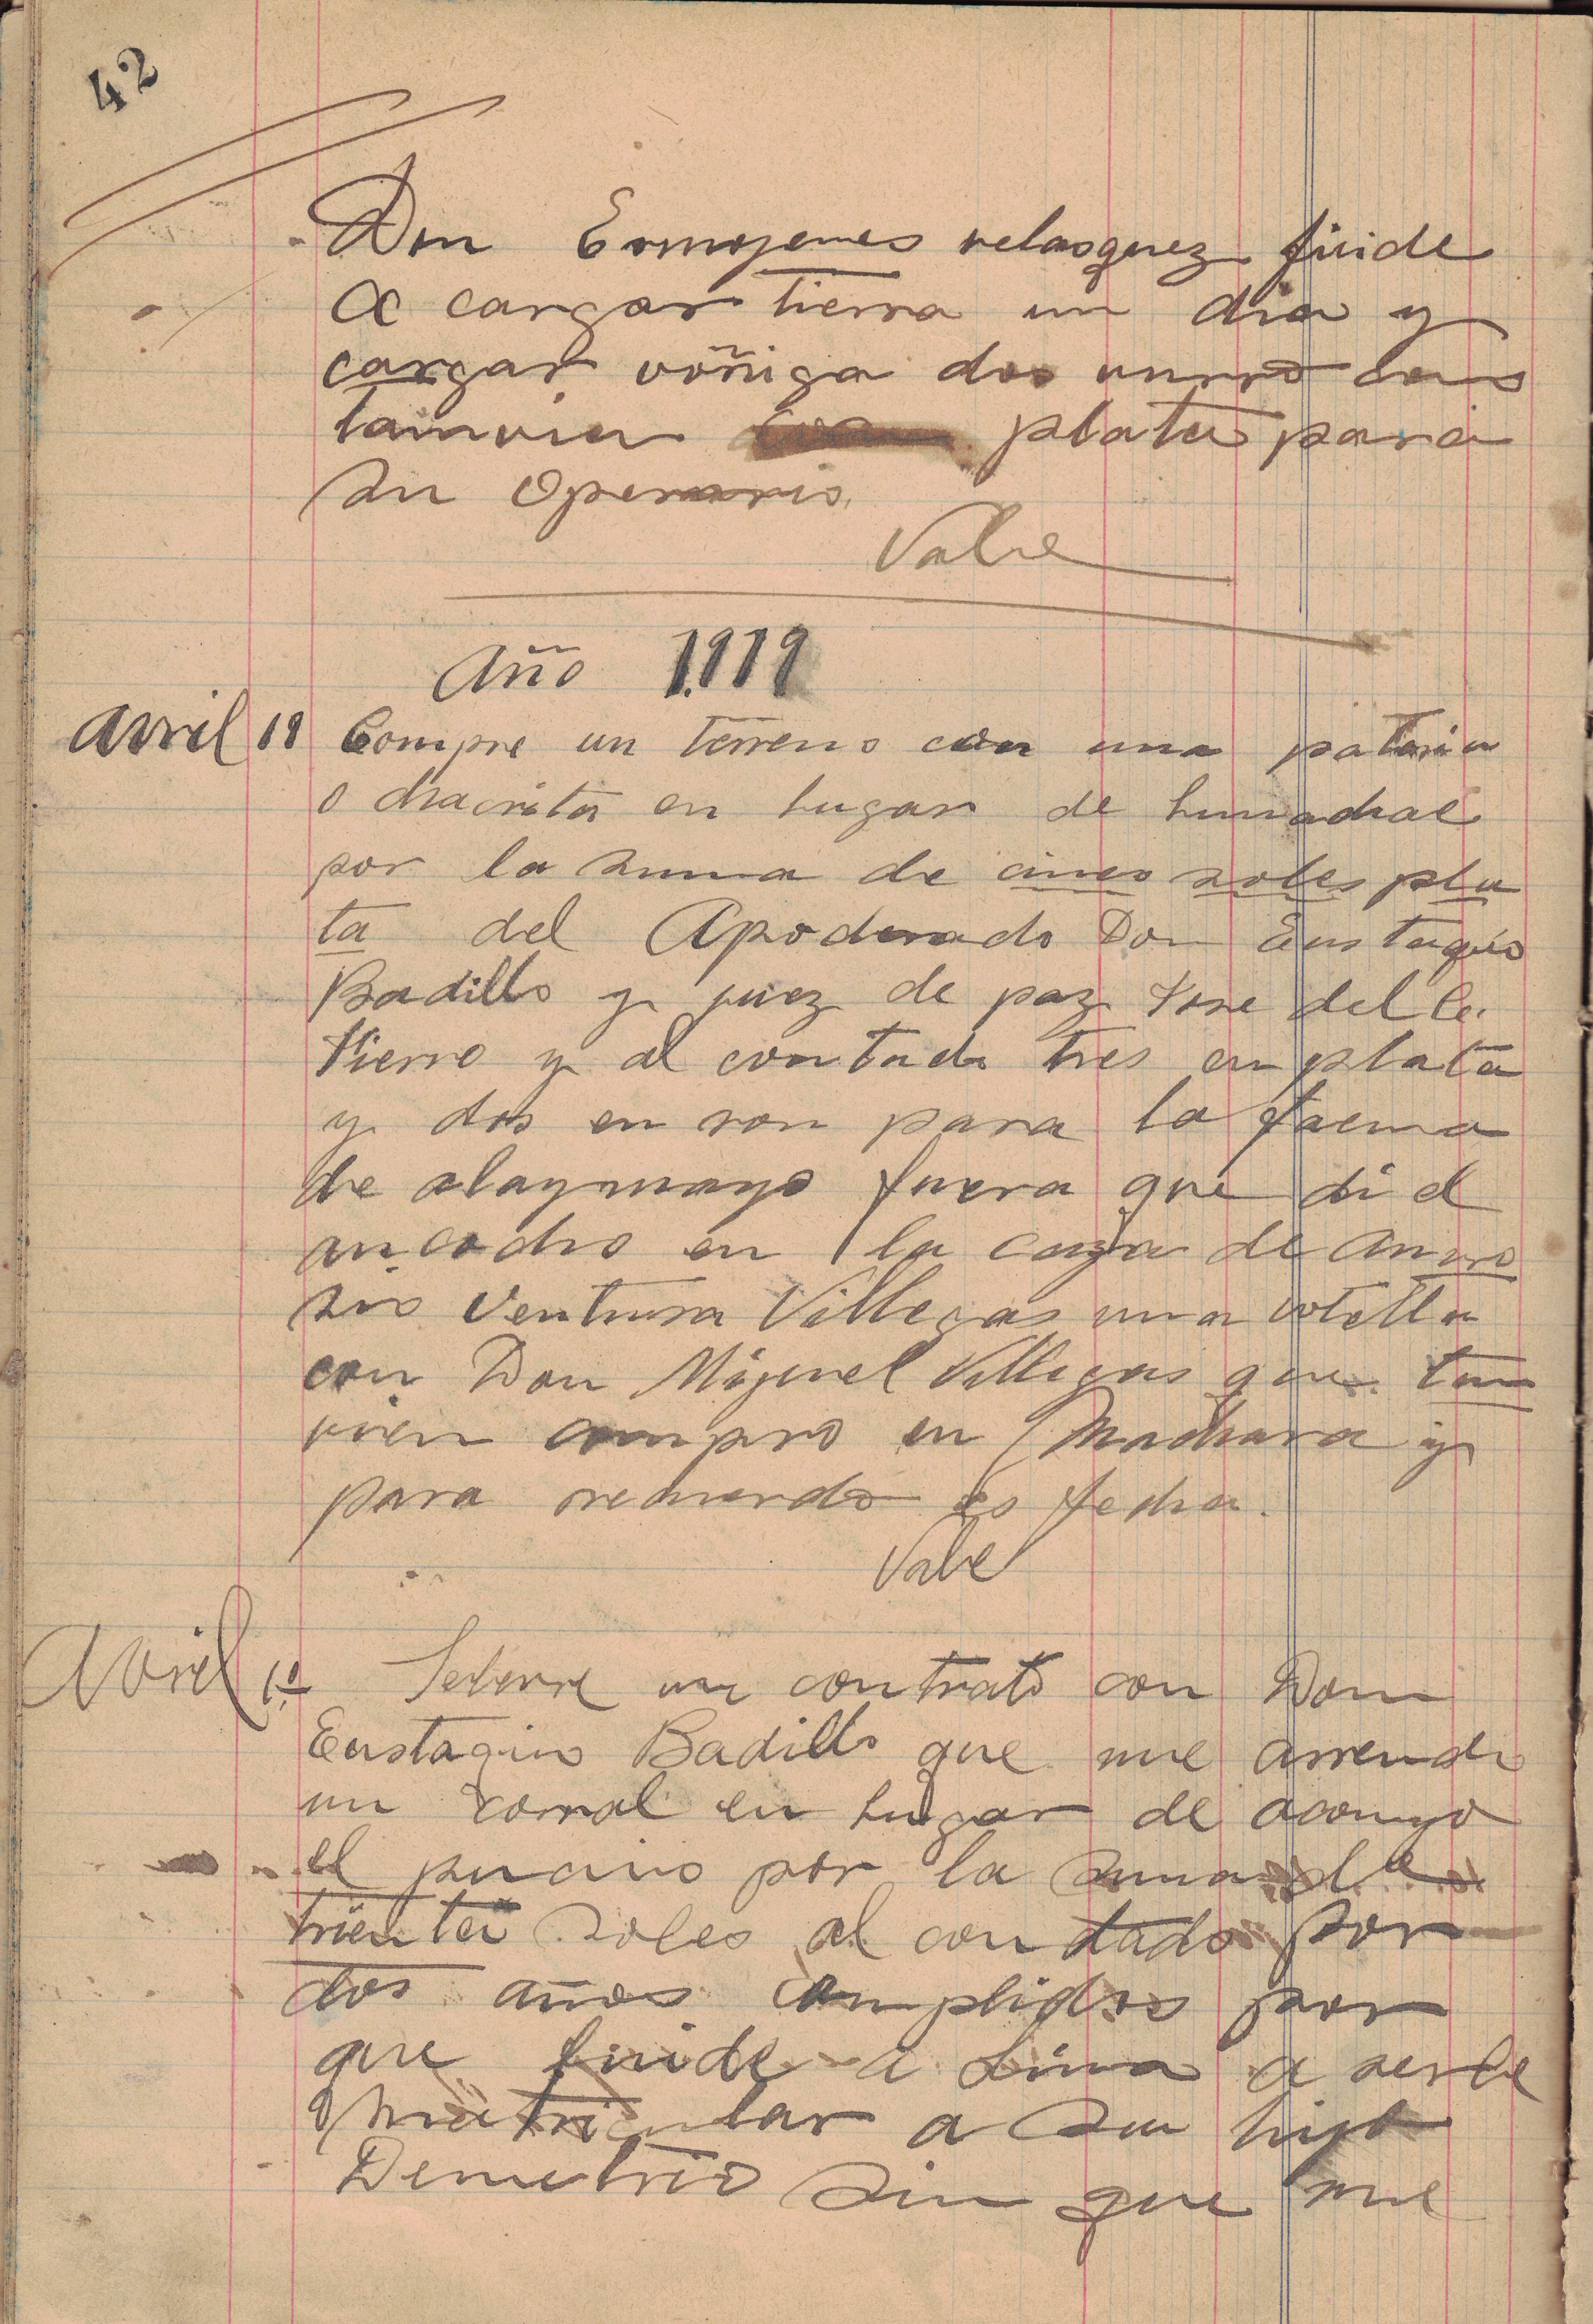 42
Don Ermojenes velasquez fuide
a cargar tierra un dia y
cargar voñiga dos vurro cons
tamvien plata para
su Operario.
Vale
Año 1919
Avril 18 Compre un terreno con una
o chacrita en lugar de
por la suma de cinco soles pla
ta del Apoderado Don Eustaquio
Badillo y juez de paz Jose del C.
Fierro y al contado tres en plata
y dos en ron para la faena
de alaymayo fuera que di el
en la caza de Amvro
sio Ventura Villegas una votella
con Don Miguel Villegas que tan
vien compro en Machara y
para recuerdo es fecha.
Vale
Avril 10 Selevre un contrato con Don
Eustaquio Badillo que me arrendo
un corral en lugar de acomyo
el pucuio por la suma de
trienta soles al contado por
dos años cumplidos por
que fuide a Lima a serle
Matricular a su hijo
Demetrio sin que me